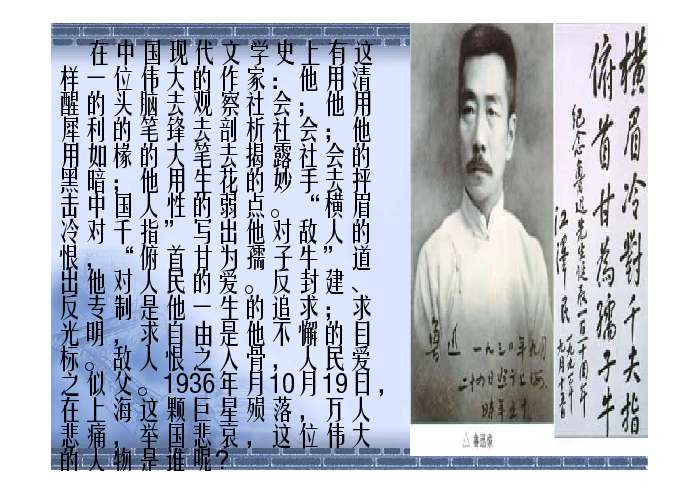 在中国现代文学史上有这
样一位伟大的作家：他用清
醒的头脑去观察社会；他用
犀利的笔锋去剖析社会；他
用如椽的大笔去揭露社会的
黑暗；他用生花的妙手去抨
击中国人性的弱点。“横眉
冷对千指”写出他对敌人的
恨，“俯首甘为孺子牛”道
出他对人民的爱。反封建、
反专制是他一生的追求；求
光明，求自由是他不懈的目
标。敌人恨之入骨，人民爱
之似父。1936年月10月19日，
在上海这颗巨星殒落，万人
悲痛，举国悲哀，这位伟大
的人物是谁呢？
橫眉冷對千夫指
俯首甘為孺子牛
紀念魯迅先生誕辰一百一十周年
江澤民
一九九一年
九月十五日
魯迅 一九三〇年九月
二十四日
時年五十
△ 鲁迅像